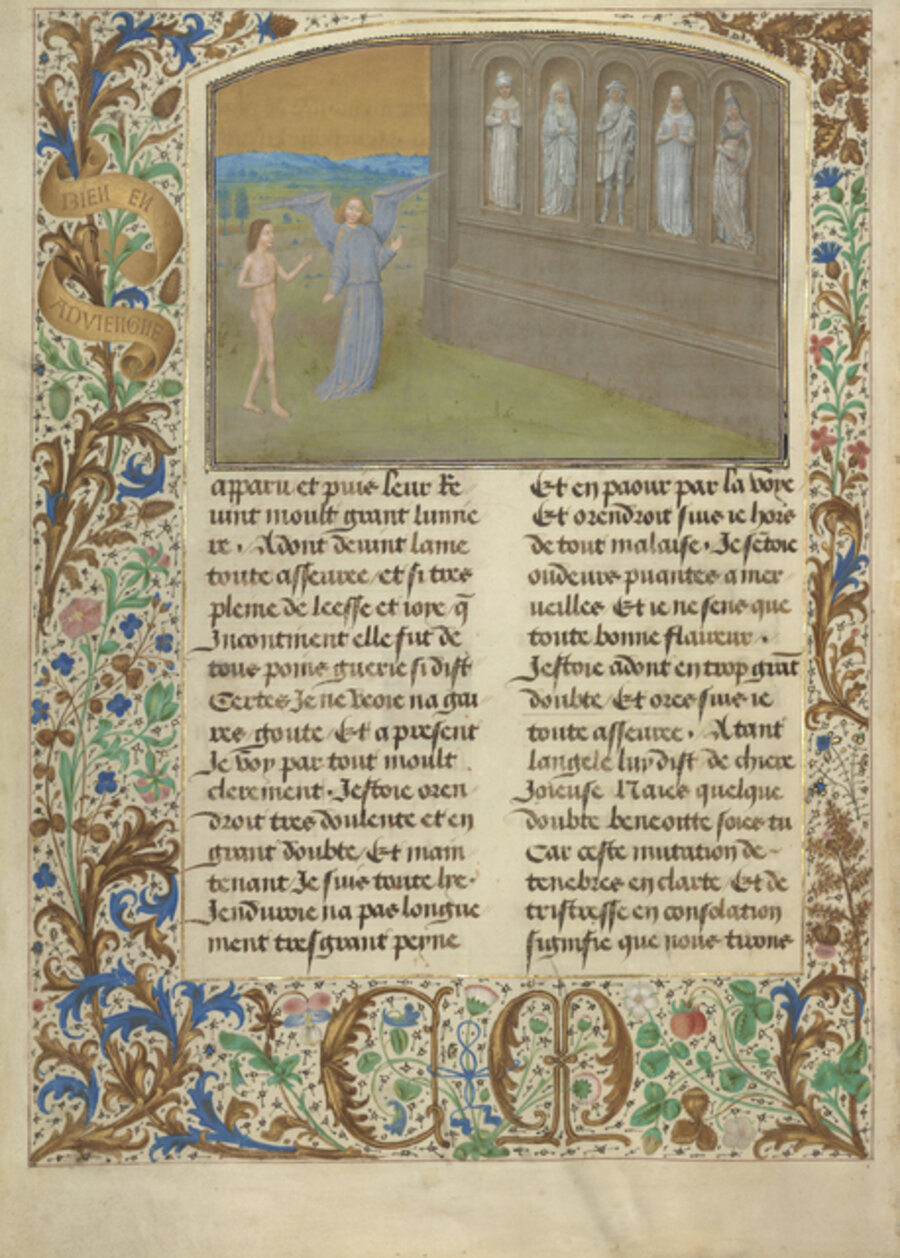 BIEN EN
ADVIENGNE
apparu et puis leur se
uint moult grant lumie
re. Adont deuint lame
toute asseuree et si tres
pleine de leesse et ioye q̄
Incontinent elle fut de
tous poins guerie si dist
Certes Je ne veoie na gai
res goute Et a present
Je voy par tout moult
clerement. Jestoie oren
droit tres doulente et en
grant doubte Et main
tenant Je suis toute lye.
Jenduroie na pas longue
ment tresgrant peyne
Et en paour par la voye
Et orendroit suis ie hors
de tout malaise. Je sētoie
oudeurs puantes a mer
ueilles Et ie ne sens que
toute bonne flaireur.
Jestoie adont en trop grāt
doubte Et ores suis ie
toute asseuree. Atant
langele luy dist de chiere
Joieuse Naies quelque
doubte beneoitte soies tu
Car ceste mutation de
tenebres en clarte Et de
tristresse en consolation
signifie que nous tirons
C M